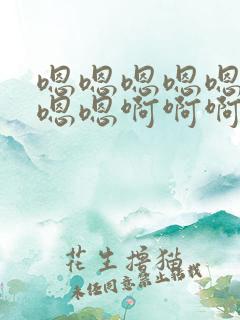 嗯嗯嗯嗯嗯
嗯嗯啊啊啊
花生撸猫
未经同意禁止转载